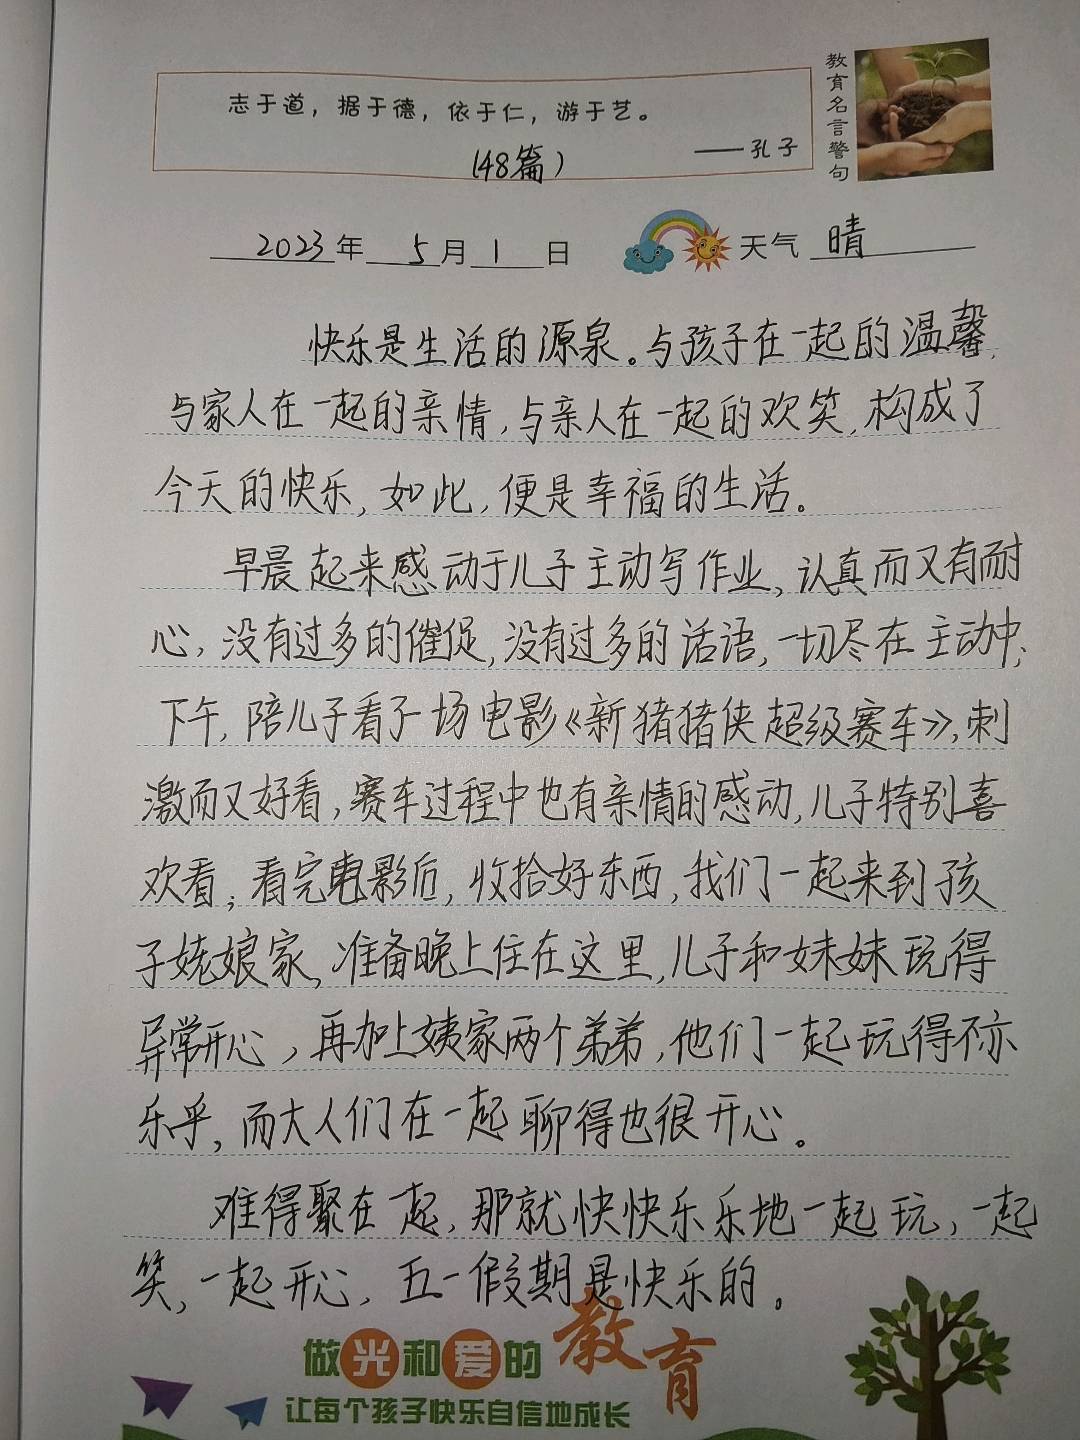 志于道，据于德，依于仁，游于艺。
——孔子
教育名言警句
(48篇)
2023年 5月 1日 天气 晴
快乐是生活的源泉。与孩子在一起的温馨,
与家人在一起的亲情,与亲人在一起的欢笑,构成了
今天的快乐,如此,便是幸福的生活。
早晨起来感动于儿子主动写作业,认真而又有耐
心,没有过多的催促,没有过多的话语,一切尽在主动中;
下午,陪儿子看了一场电影《新猪猪侠超级赛车》,刺
激而又好看,赛车过程中也有亲情的感动,儿子特别喜
欢看;看完电影后,收拾好东西,我们一起来到孩
子姥娘家,准备晚上住在这里,儿子和妹妹玩得
异常开心,再加上姨家两个弟弟,他们一起玩得不亦
乐乎,而大人们在一起聊得也很开心。
难得聚在一起,那就快快乐乐地一起玩,一起
笑,一起开心,五一假期是快乐的。
做光和爱的教育
让每个孩子快乐自信地成长